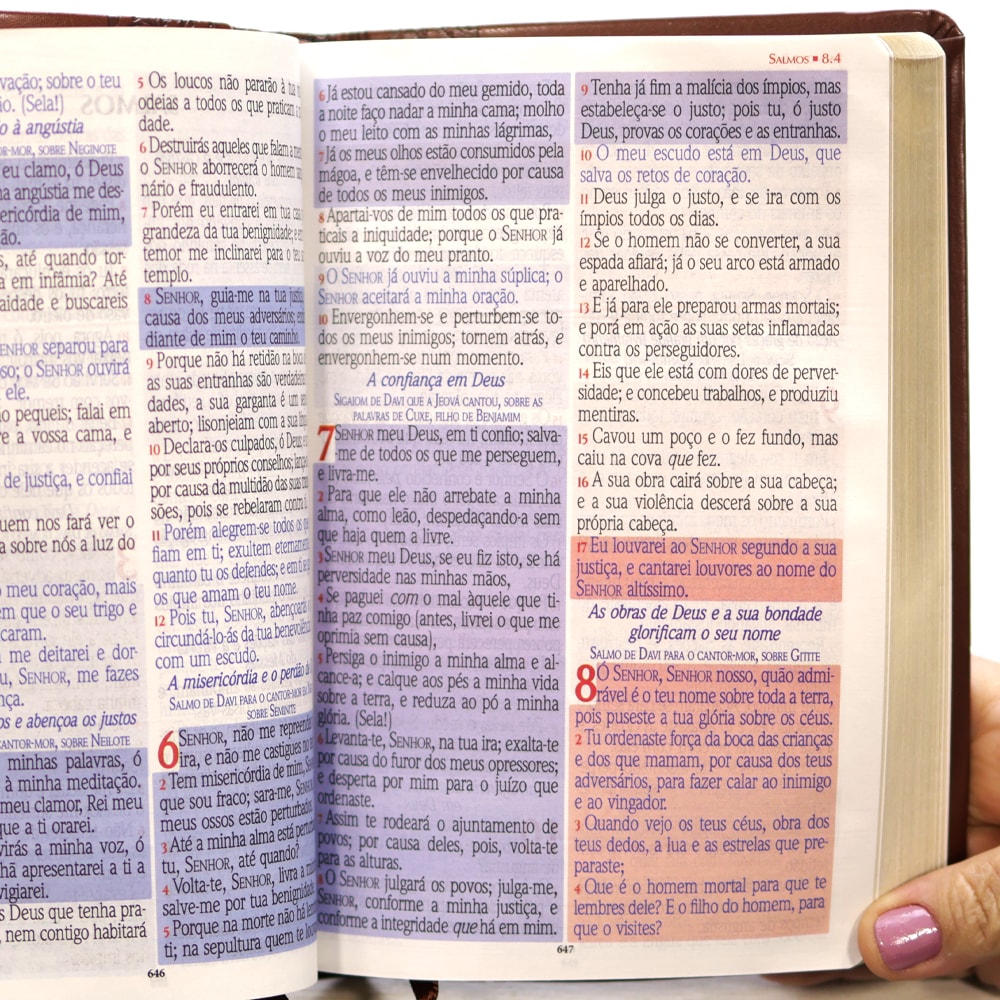 vação; sobre o teu
(Sela!)
à angústia
SOBRE NEGINOTE
eu clamo, ó Deus
angústia me des-
ericórdia de mim,
até quando tor-
em infâmia? Até
aidade e buscareis
SENHOR separou para
o SENHOR ouvirá
ele.
pequeis; falai em
a vossa cama, e
de justiça, e confiai
uem nos fará ver o
sobre nós a luz do
meu coração, mais
em que o seu trigo e
caram.
me deitarei e dor-
SENHOR, me fazes
os e abençoa os justos
CANTOR-MOR, SOBRE NEILOTE
minhas palavras, ó
à minha meditação.
meu clamor, Rei meu
que a ti orarei.
virás a minha voz, ó
apresentarei a ti a
vigiarei.
Deus que tenha pra-
nem contigo habitará
5 Os loucos não pararão à tua
odeias a todos os que praticam a
dade.
6 Destruirás aqueles que falam a
o SENHOR aborrecerá o homem
nário e fraudulento.
7 Porém eu entrarei em tua casa
grandeza da tua benignidade; e
temor me inclinarei para o teu
templo.
8 SENHOR, guia-me na tua justiça
causa dos meus adversários;
diante de mim o teu caminho.
9 Porque não há retidão na boca
as suas entranhas são verdadeiras
dades, a sua garganta é um
aberto; lisonjeiam com a sua
10 Declara-os culpados, ó Deus
por seus próprios conselhos;
por causa da multidão das suas
sões, pois se rebelaram contra
11 Porém alegrem-se todos os
fiam em ti; exultem eternamente
quanto tu os defendes; e em ti
os que amam o teu nome.
12 Pois tu, SENHOR, abençoarás
circundá-lo-ás da tua benevolência
com um escudo.
A misericórdia e o perdão
SALMO DE DAVI PARA O CANTOR-MOR EM
SOBRE SEMINITE
6 SENHOR, não me repreendas
ira, e não me castigues no
2 Tem misericórdia de mim,
que sou fraco; sara-me,
meus ossos estão perturbados
3 Até a minha alma está
tu, SENHOR, até quando?
4 Volta-te, SENHOR, livra a
salve-me por tua benignidade
5 Porque na morte não há
ti; na sepultura quem te
646
SALMOS ■ 8.4
6 Já estou cansado do meu gemido, toda
a noite faço nadar a minha cama; molho
o meu leito com as minhas lágrimas,
7 Já os meus olhos estão consumidos pela
mágoa, e têm-se envelhecido por causa
de todos os meus inimigos.
8 Apartai-vos de mim todos os que pra-
ticais a iniquidade; porque o SENHOR já
ouviu a voz do meu pranto.
9 O SENHOR já ouviu a minha súplica; o
SENHOR aceitará a minha oração.
10 Envergonhem-se e perturbem-se to-
dos os meus inimigos; tornem atrás, e
envergonhem-se num momento.
A confiança em Deus
SIGAIOM DE DAVI QUE A JEOVÁ CANTOU, SOBRE AS
PALAVRAS DE CUXE, FILHO DE BENJAMIM
7 SENHOR meu Deus, em ti confio; salva-
-me de todos os que me perseguem,
e livra-me.
2 Para que ele não arrebate a minha
alma, como leão, despedaçando-a sem
que haja quem a livre.
3 SENHOR meu Deus, se eu fiz isto, se há
perversidade nas minhas mãos,
4 Se paguei com o mal àquele que ti-
nha paz comigo (antes, livrei o que me
oprimia sem causa),
5 Persiga o inimigo a minha alma e al-
cance-a; e calque aos pés a minha vida
sobre a terra, e reduza ao pó a minha
glória. (Sela!)
6 Levanta-te, SENHOR, na tua ira; exalta-te
por causa do furor dos meus opressores;
e desperta por mim para o juízo que
ordenaste.
7 Assim te rodeará o ajuntamento de
povos; por causa deles, pois, volta-te
para as alturas.
8 O SENHOR julgará os povos; julga-me,
SENHOR, conforme a minha justiça, e
conforme a integridade que há em mim.
9 Tenha já fim a malícia dos ímpios, mas
estabeleça-se o justo; pois tu, ó justo
Deus, provas os corações e as entranhas.
10 O meu escudo está em Deus, que
salva os retos de coração.
11 Deus julga o justo, e se ira com os
ímpios todos os dias.
12 Se o homem não se converter, a sua
espada afiará; já o seu arco está armado
e aparelhado.
13 E já para ele preparou armas mortais;
e porá em ação as suas setas inflamadas
contra os perseguidores.
14 Eis que ele está com dores de perver-
sidade; e concebeu trabalhos, e produziu
mentiras.
15 Cavou um poço e o fez fundo, mas
caiu na cova que fez.
16 A sua obra cairá sobre a sua cabeça;
e a sua violência descerá sobre a sua
própria cabeça.
17 Eu louvarei ao SENHOR segundo a sua
justiça, e cantarei louvores ao nome do
SENHOR altíssimo.
As obras de Deus e a sua bondade
glorificam o seu nome
SALMO DE DAVI PARA O CANTOR-MOR, SOBRE GITITE
8 Ó SENHOR, SENHOR nosso, quão admi-
rável é o teu nome sobre toda a terra,
pois puseste a tua glória sobre os céus.
2 Tu ordenaste força da boca das crianças
e dos que mamam, por causa dos teus
adversários, para fazer calar ao inimigo
e ao vingador.
3 Quando vejo os teus céus, obra dos
teus dedos, a lua e as estrelas que pre-
paraste;
4 Que é o homem mortal para que te
lembres dele? E o filho do homem, para
que o visites?
647